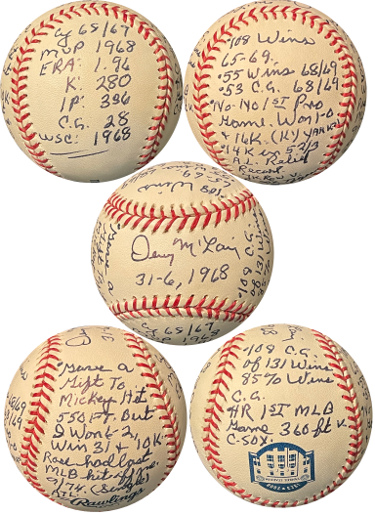 Cy 68/69
MVP 1968
ERA: 1.96
K: 280
IP: 336
C.G. 28
WSC: 1968
108 Wins
65-69.
55 Wins 68/69
53 C.G. 68/69
No-No 1st Pro
Game. Won 2-0
+ 16K.
14 K in
A.L. Relief
Record
Denny McLain
31-6, 1968
"Gave a
Gift To
Mickey Hit
550 FT. But
I Won 6-2,
Win 31 + 10K.
Rose had last
MLB hit off me.
9/74. (Single)
ATL.
Rawlings
108 C.G.
of 131 Wins
85% Wins
C.G.
HR 1ST MLB
Game 360 ft
C-SOX.